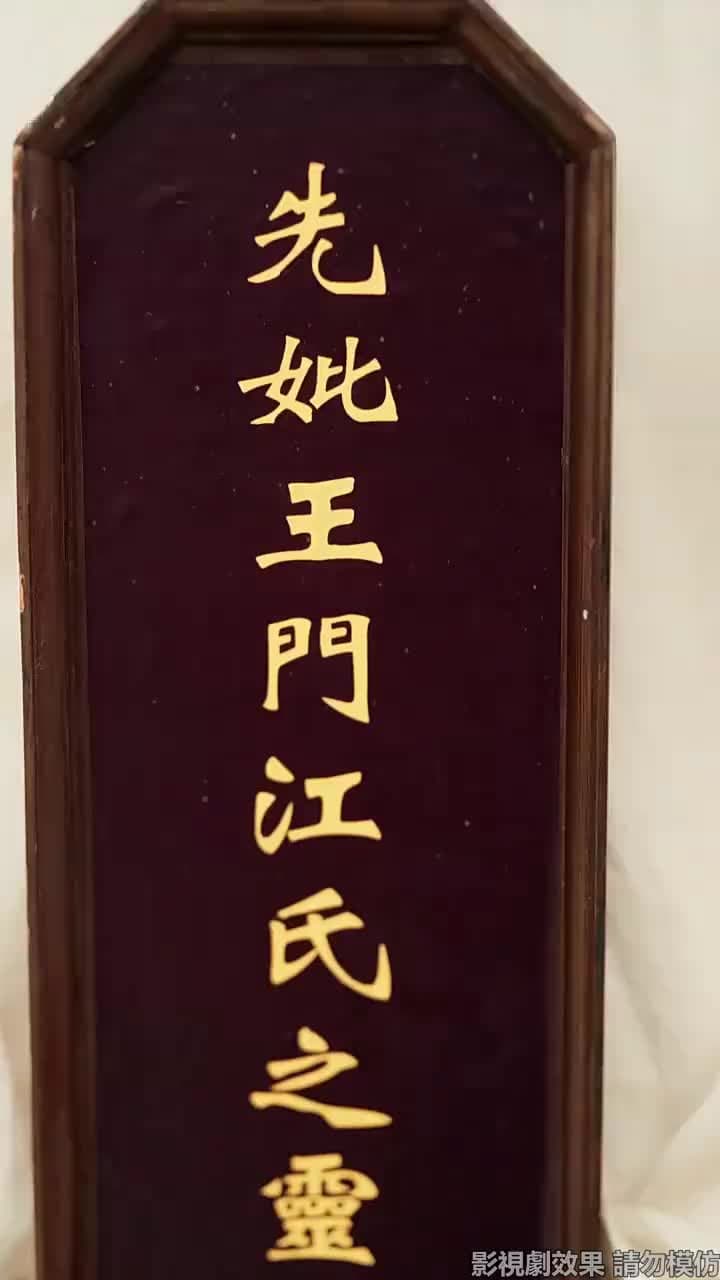 先妣王門江氏之靈
影視劇效果 請勿模仿